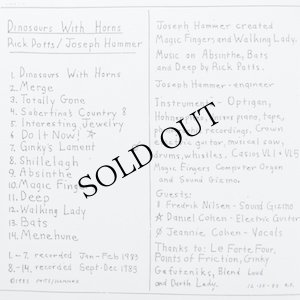 Dinosaurs With Horns
Rick Potts / Joseph Hammer
1. Dinosaurs With Horns
2. Merge
3. Totally Gone
4. Sobertina's Country 8
5. Interesting Jewelry
6. Do It Now! ☆
7. Ginky's Lament
8. Shillelagh
9. Absinthe
10. Magic Fing
11. Deep
12. Walking Lady
13. Bats
14. Menehune
1-7. recorded Jan-Feb 1983
8,-14, recorded Sept-Dec 1983
©1983 POTTS/HAMMER
Joseph Hammer created
Magic Fingers and Walking Lady.
Music on Absinthe, Bats
and Deep by Rick Potts.
Joseph Hammer - engineer
Instruments - Optigan,
piano, tape,
recordings, Crown
guitar, musical saw,
drums, whistles, Casios VL1 + VL5
Magic Fingers Computer Organ
and Sound Gizmo
Guests:
8 Fredrik Nilsen - Sound Gizmo
☆ Daniel Cohen - Electric Guitar
Ø Jeannie Cohen - Vocals
Thanks to: Le Forte Four,
Points of Friction, Ginky
Blend Loud
and Darth Lady.
SOLD OUT